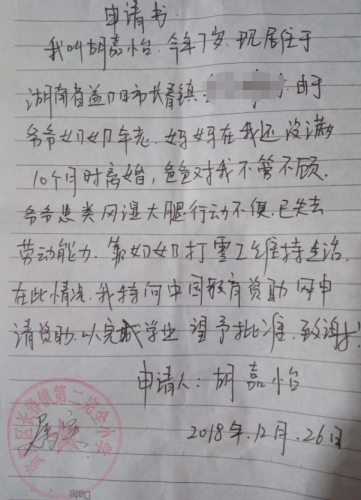 申请书
我叫胡嘉怡.今年7岁.现居住于
湖南省益阳市长春镇 由于
爷爷奶奶年老.妈妈在我还没满
10个月时离婚,爸爸对我不管不顾.
爷爷患类风湿大腿行动不便.已失去
劳动能力.靠奶奶打零工维持生活.
在此情况.我特向中国教育资助网申
请资助.以完成学业 望予批准.致谢!
申请人:胡嘉怡
2018年.12月.26日
属实
区长春镇第二完全小学
Date